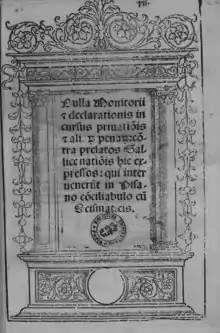 Bulla Monitorii
⁊ declarationis in
cursus priuatiõis
⁊ ali. ꝑ penaꝝ: cõ
tra prelatos Gal
lice natiõis hic ex
pressos: qui inter
uenerũt in Pisa
no cõciliabulo cũ
Scismaticis.